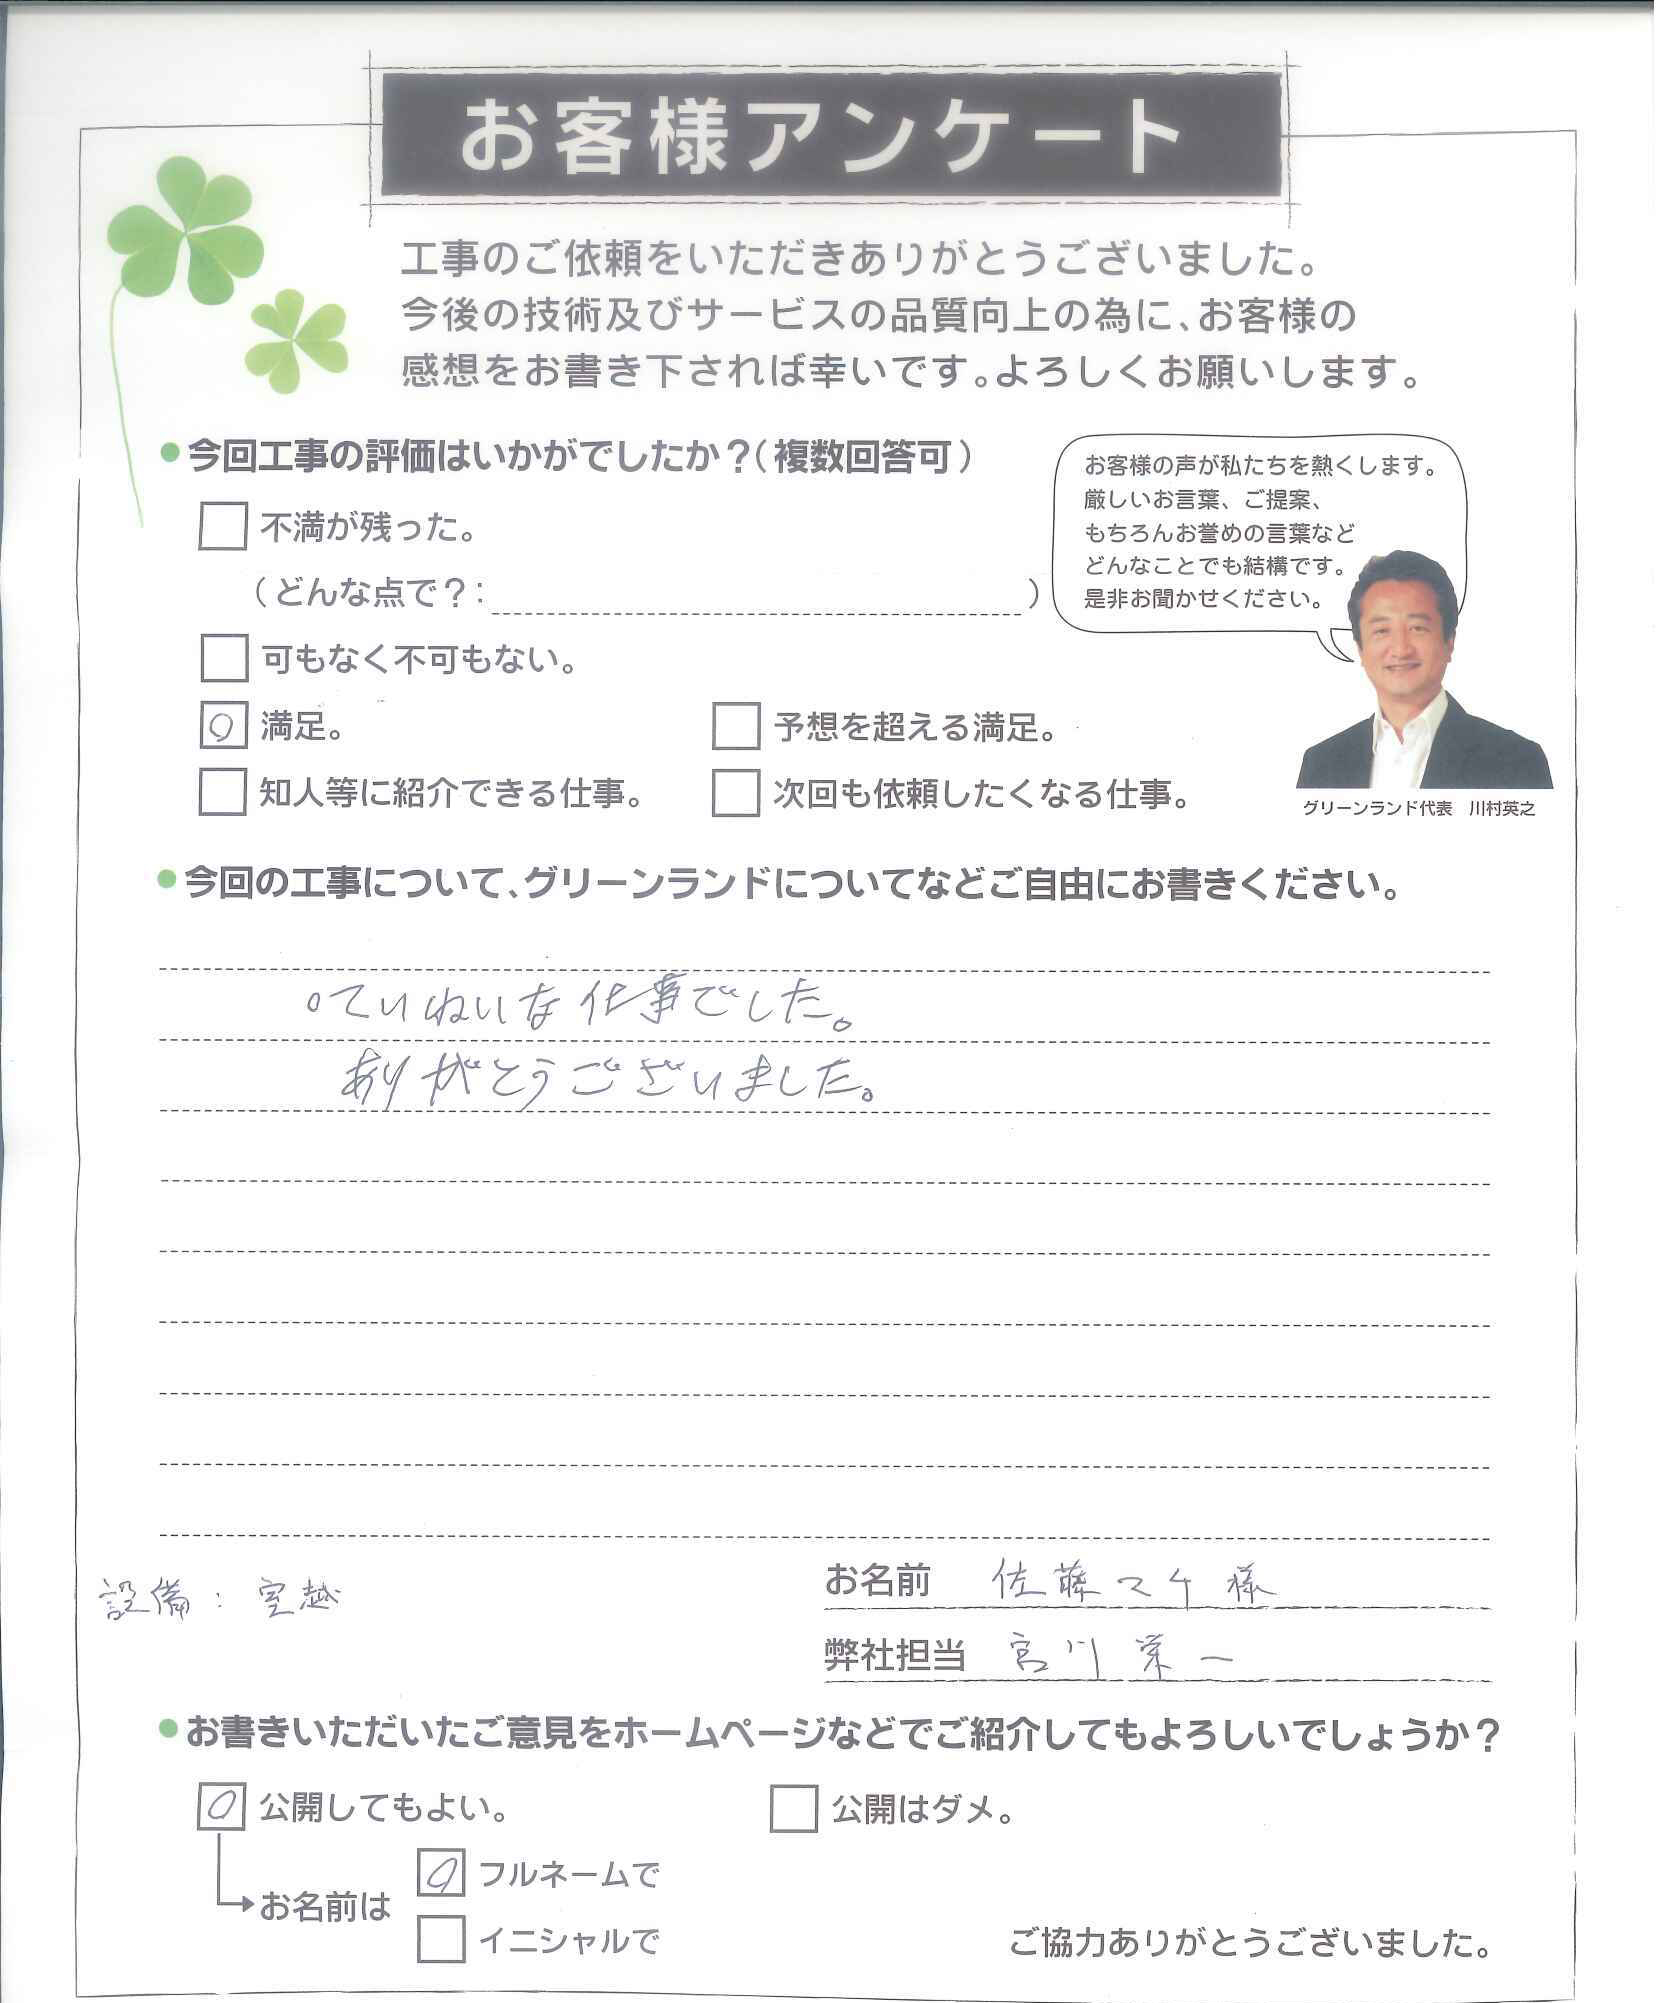 お客様アンケート
工事のご依頼をいただきありがとうございました。
今後の技術及びサービスの品質向上の為に、お客様の
感想をお書き下されば幸いです。よろしくお願いします。
●今回工事の評価はいかがでしたか？（複数回答可）
不満が残った。
（どんな点で？：　）
可もなく不可もない。
○ 満足。
予想を超える満足。
知人等に紹介できる仕事。
次回も依頼したくなる仕事。
お客様の声が私たちを熱くします。
厳しいお言葉、ご提案、
もちろんお誉めの言葉など
どんなことでも結構です。
是非お聞かせください。
グリーンランド代表　川村英之
●今回の工事について、グリーンランドについてなどご自由にお書きください。
○ていねいな仕事でした。
ありがとうございました。
設備：室越
お名前 佐藤マケ様
弊社担当 宮川栄一
●お書きいただいたご意見をホームページなどでご紹介してもよろしいでしょうか？
○ 公開してもよい。
公開はダメ。
お名前は
○ フルネームで
イニシャルで
ご協力ありがとうございました。